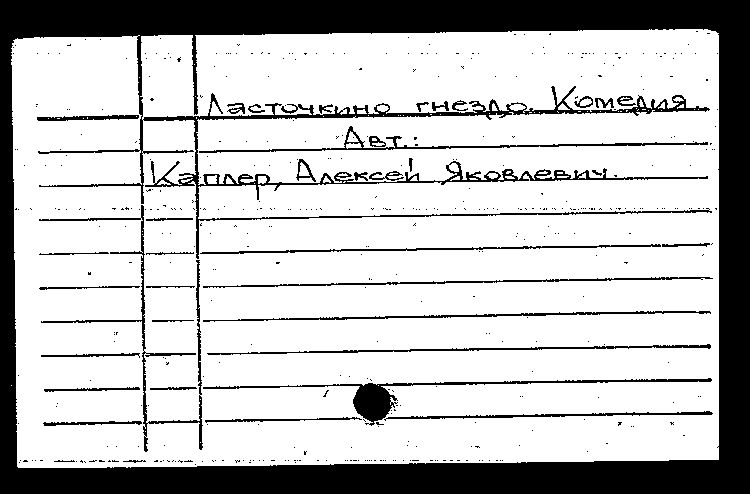 Ласточкино гнездо. Комедия.
Авт.:
Каплер, Алексей Яковлевич.